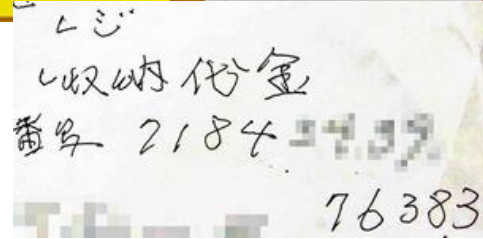 レジ
収納代金
番号 2184
76383